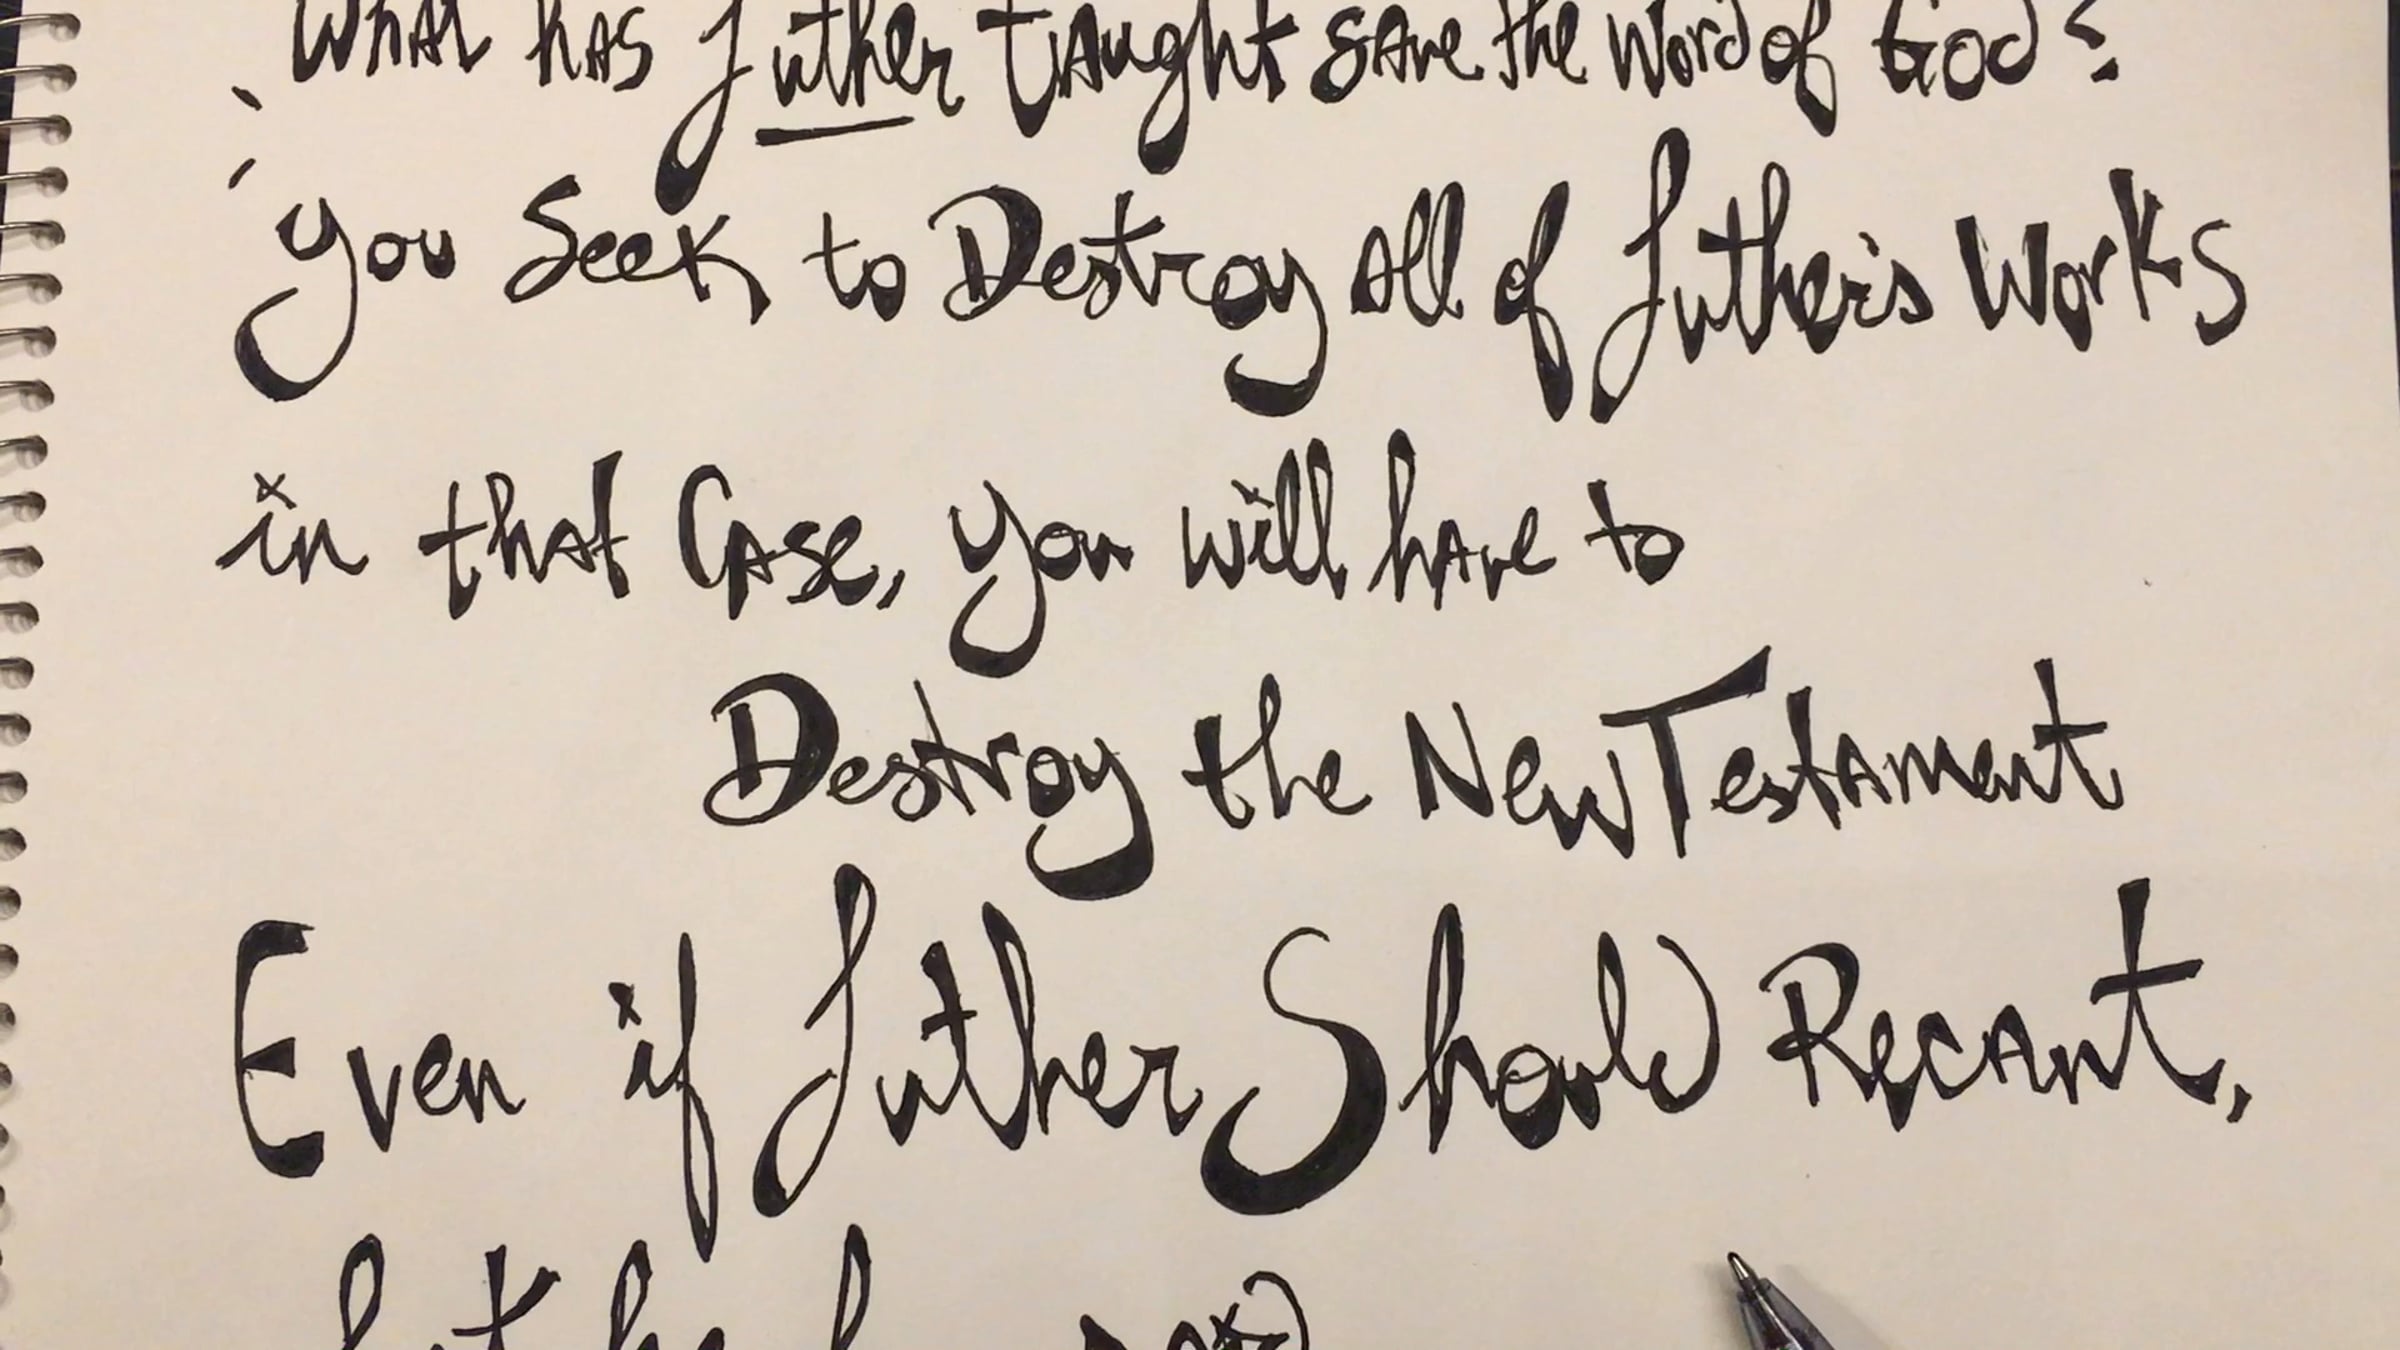 What has Luther taught save the Word of God?
you Seek to Destroy all of Luther's Works
in that Case, you will have to
Destroy the New Testament
Even if Luther Should Recant,